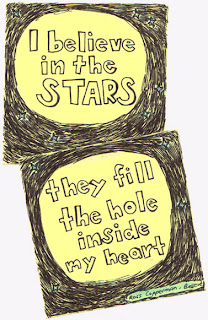 I believe
in the
STARS
they fill
the hole
inside
my heart
Ross Copperman -